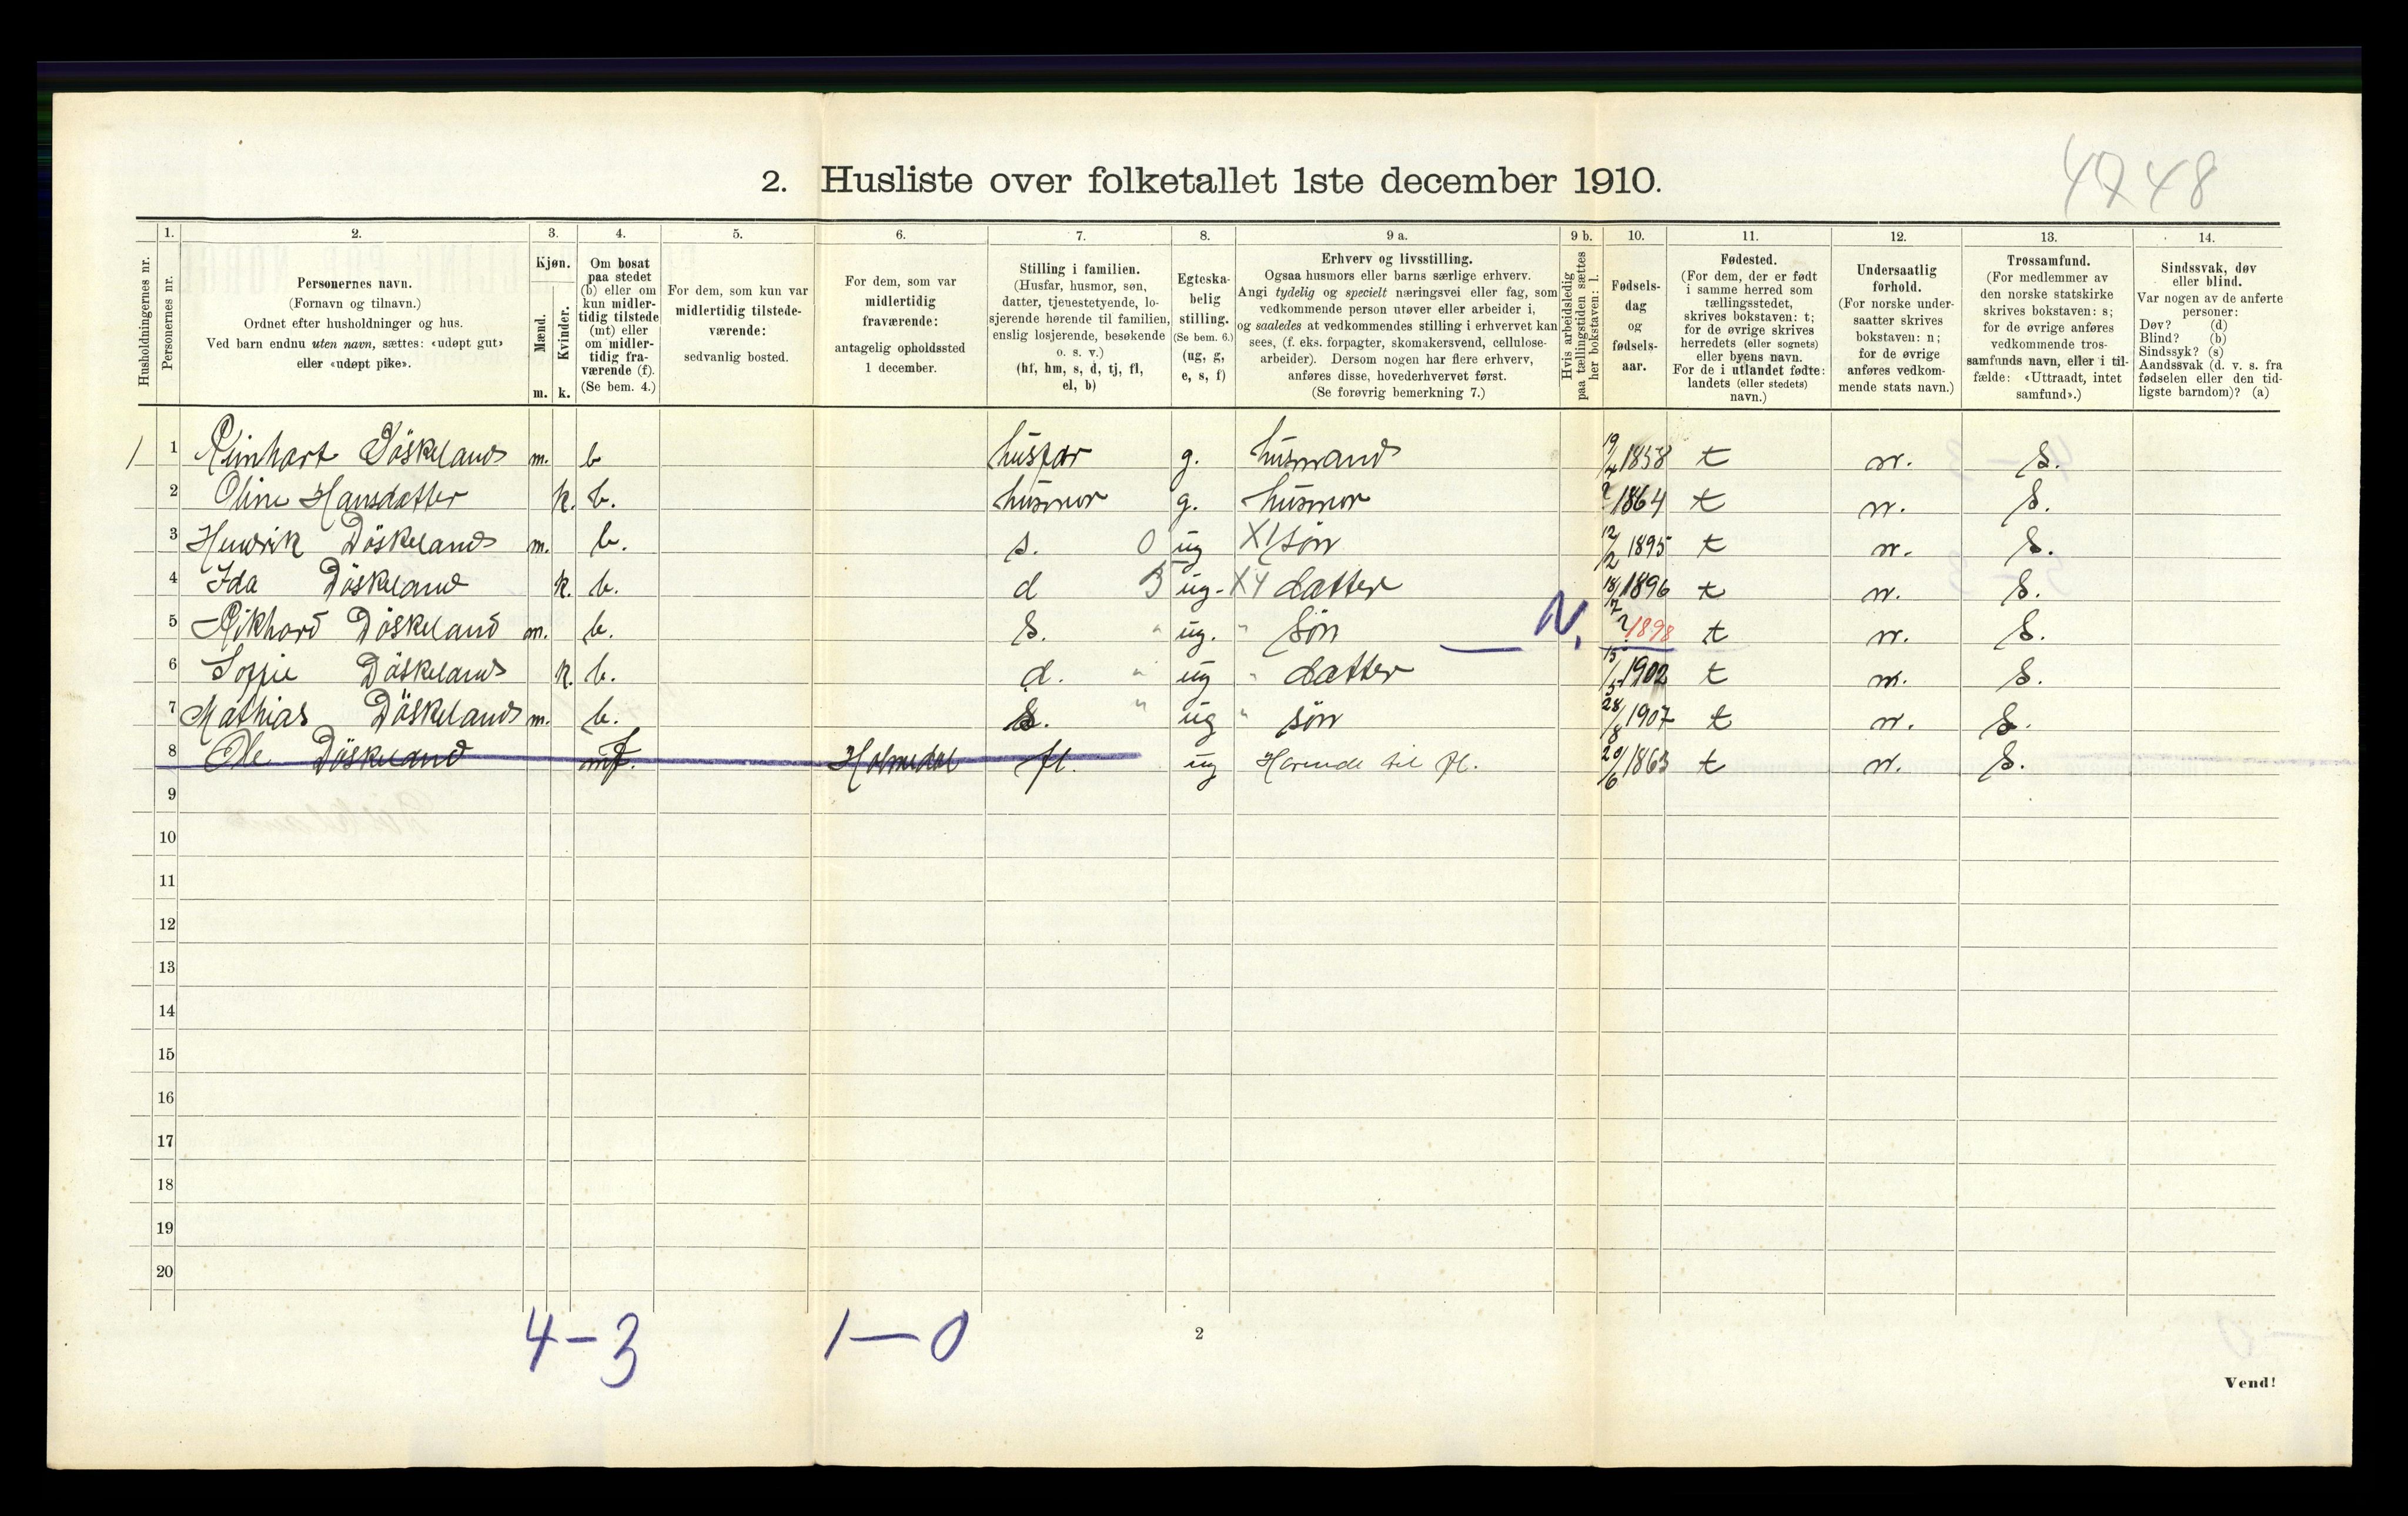 2. Husliste over folketallet 1ste december 1910.
4748
Husholdningernes nr.
1.
Personernes nr.
2.
Personernes navn.
(Fornavn og tilnavn.)
Ordnet efter husholdninger og hus.
Ved barn endnu uten navn, sættes: «udøpt gut»
eller «udøpt pike».
3.
Kjøn.
Mænd.
Kvinder.
m. k.
4.
Om bosat
paa stedet
(b) eller om
kun midler-
tidig tilstede
(mt) eller
om midler-
tidig fra-
værende (f).
(Se bem. 4.)
5.
For dem, som kun var
midlertidig tilstede-
værende:
sedvanlig bosted.
6.
For dem, som var
midlertidig
fraværende:
antagelig opholdssted
1 december.
7.
Stilling i familien.
(Husfar, husmor, søn,
datter, tjenestetyende, lo-
sjerende hørende til familien,
enslig losjerende, besøkende
o. s. v.)
(hf, hm, s, d, tj, fl,
el, b)
8.
Egteska-
belig
stilling.
(Se bem. 6.)
(ug, g,
e, s, f)
9 a.
Erhverv og livsstilling.
Ogsaa husmors eller barns særlige erhverv.
Angi tydelig og specielt næringsvei eller fag, som
vedkommende person utøver eller arbeider i,
og saaledes at vedkommendes stilling i erhvervet kan
sees, (f. eks. forpagter, skomakersvend, cellulose-
arbeider). Dersom nogen har flere erhverv,
anføres disse, hovederhvervet først.
(Se forøvrig bemerkning 7.)
9 b.
Hvis arbeidsledig
paa tællingstiden sættes
her bokstaven: l.
10.
Fødsels-
dag
og
fødsels-
aar.
11.
Fødested.
(For dem, der er født
i samme herred som
tællingsstedet,
skrives bokstaven: t;
for de øvrige skrives
herredets (eller sognets)
eller byens navn.
For de i utlandet fødte:
landets (eller stedets)
navn.)
12.
Undersaatlig
forhold.
(For norske under-
saatter skrives
bokstaven: n;
for de øvrige
anføres vedkom-
mende stats navn.)
13.
Trossamfund.
(For medlemmer av
den norske statskirke
skrives bokstaven: s;
for de øvrige anføres
vedkommende tros-
samfunds navn, eller i til-
fælde: «Uttraadt, intet
samfund».)
14.
Sindssvak, døv
eller blind.
Var nogen av de anførte
personer:
Døv? (d)
Blind? (b)
Sindssyk? (s)
Aandssvak (d. v. s. fra
fødselen eller den tid-
ligste barndom)? (a)
1 1 Reinhart Döskeland m. b husfar g. husmand 19/4 1858 t n. S.
2 Oline Hansdatter k. b. husmor g. husmor ? 1864 t n. S.
3 Hendrik Döskeland m. b. s. O ug X/ søn 12/2 1895 t n. S.
4 Ida Döskeland k. b. d ug. datter 18/12 1896 t n. S.
5 Rikhard Döskeland m. b. S. " ug. " søn N. ? 1898 t n. S.
6 Soffie Döskeland k. b. d. " ug " datter 15/5 1902 t n. S.
7 Mathias Döskeland m. b. S. " ug " søn 28/8 1907 t n. S.
8 Ole Döskeland f. Holmedal fl. ug Hørende til fl. 20/6 1863 t n. S.
9
10
11
12
13
14
15
16
17
18
19
20
4-3 1-0
2
Vend!